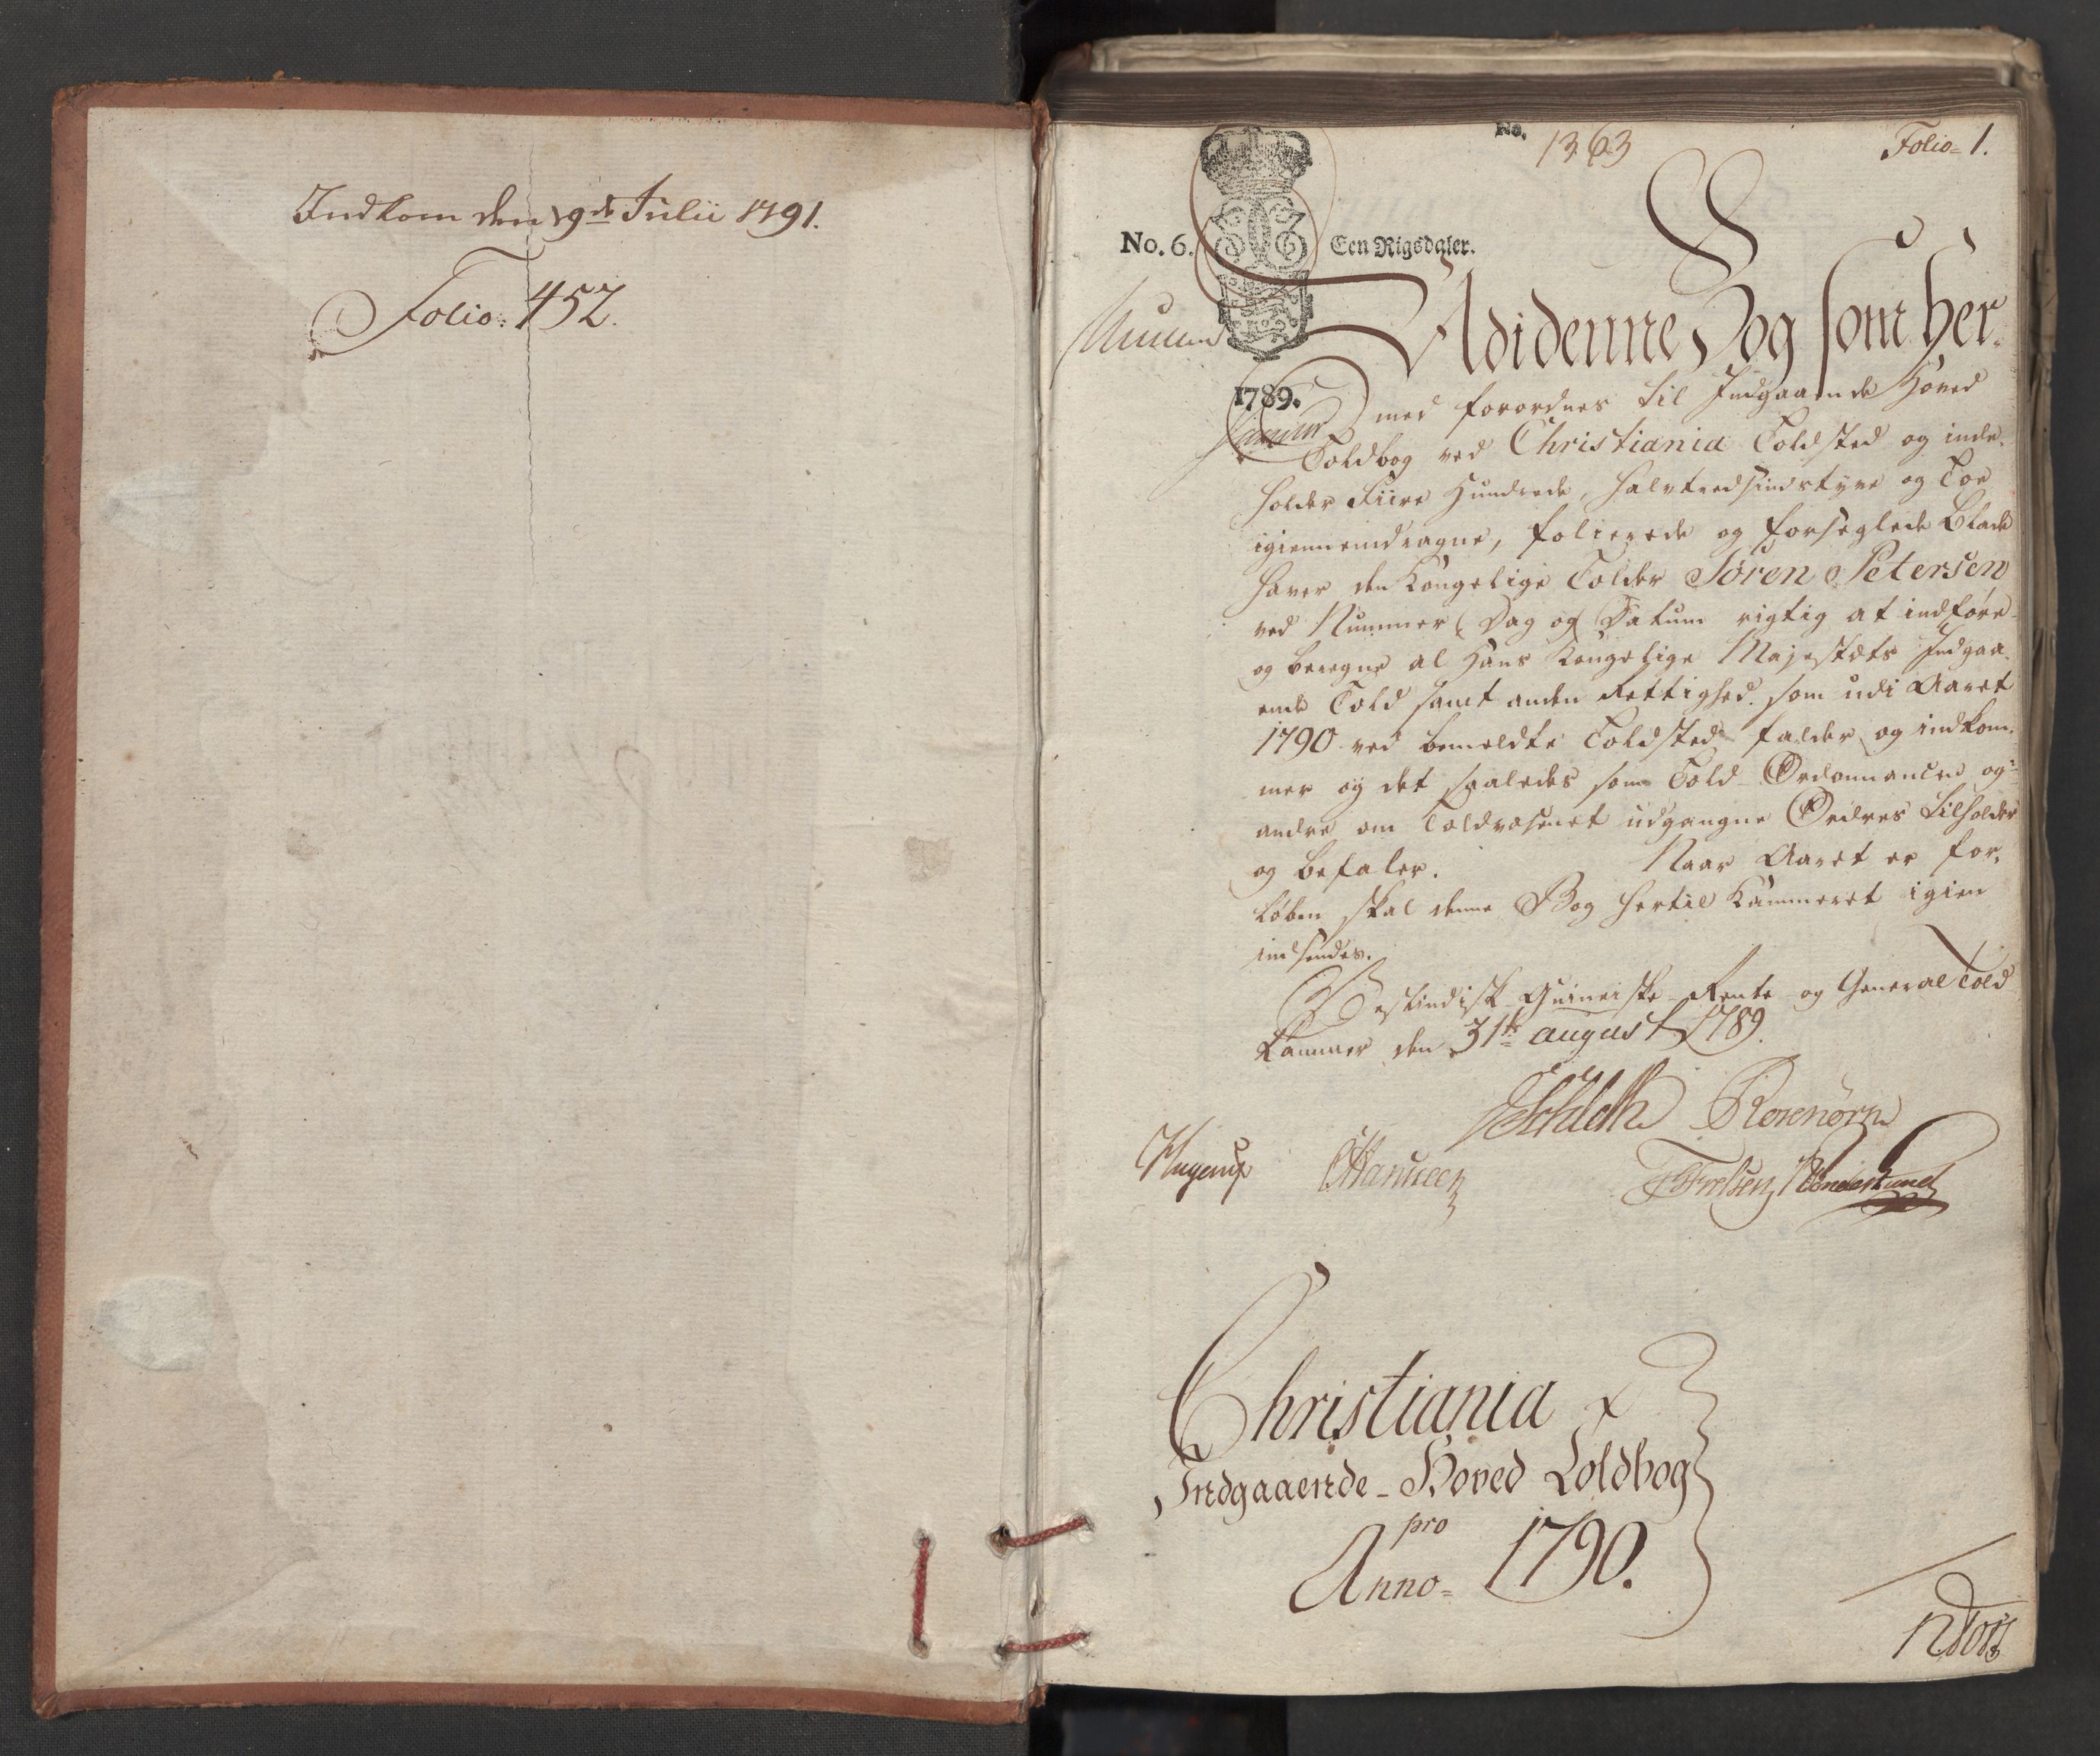 Indkom den 19de Julii 1791.
Folio. 452.
No. 1363
Folio= 1.
No. 6.
Een Rigsdaler.
1789.
Udi denne Bog som her-
med forordnes til Indgaaende Hoved
Toldbog ved Christiania Toldsted og inde-
holder Fiire Hundrede, halvtredsindstyve og Toe
igiennemdragne, folierede og forseglede Blade
haver den Kongelige Tolder Sören Petersen
ved Nummer, Dag og Datum rigtig at indføre
og beregne al Hans Kongelige Majestæts Indgaa-
ende Told samt anden Rettighed som udi Aaret
1790 ved bemeldte Toldsted falder og indkom-
mer og det saaledes som Told-Ordonnancen og
andre om Toldvæsenet udgangne Ordres tilholder
og befaler. Naar Aaret er for-
løben skal denne Bog hertil Kammeret igien
indsendes.
Vestindisk-Guineiske-Rente- og General Told
Kammer den 31te august 1789.
Rosenörn
Christiania
Indgaaende-Hoved Toldbog
pro
Anno= 1790.